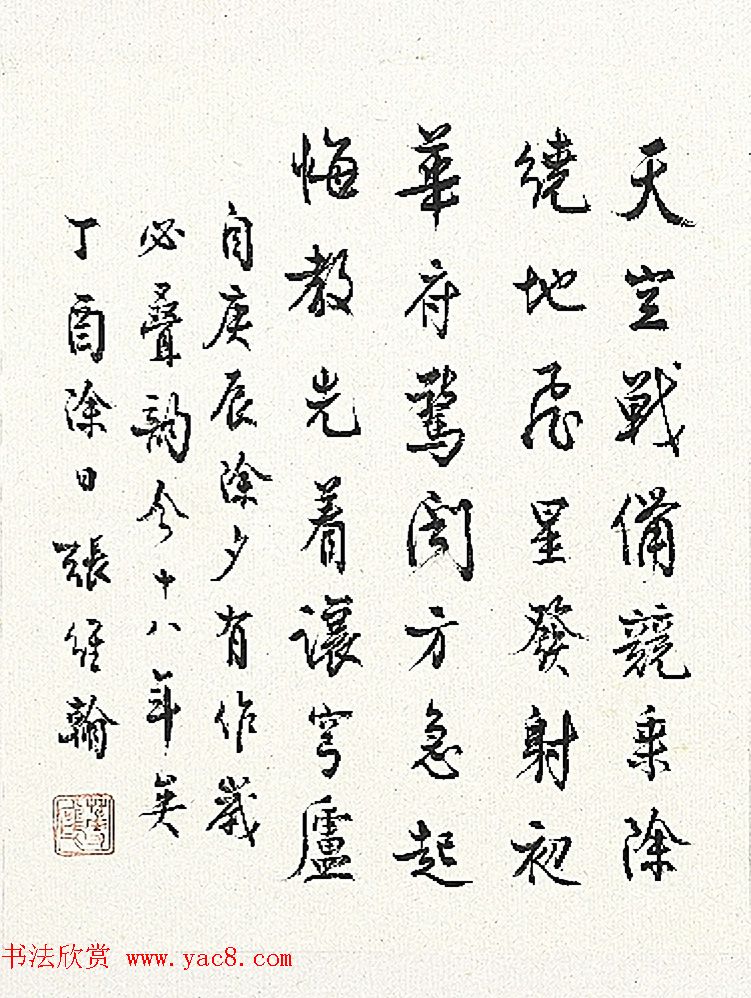 天空戰備競乘除
繞地飛星發射初
華府驚聞方急起
悔教先着讓穹廬
自庚辰除夕有作歲
必疊韻今十八年矣
丁酉除日張維翰
书法欣赏 www.yac8.com